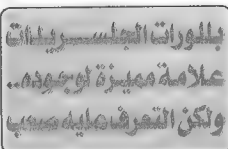 بللورات الجلســريـنات
علامة مميزة لوجوده..
ولكن التعرف عليه صعب